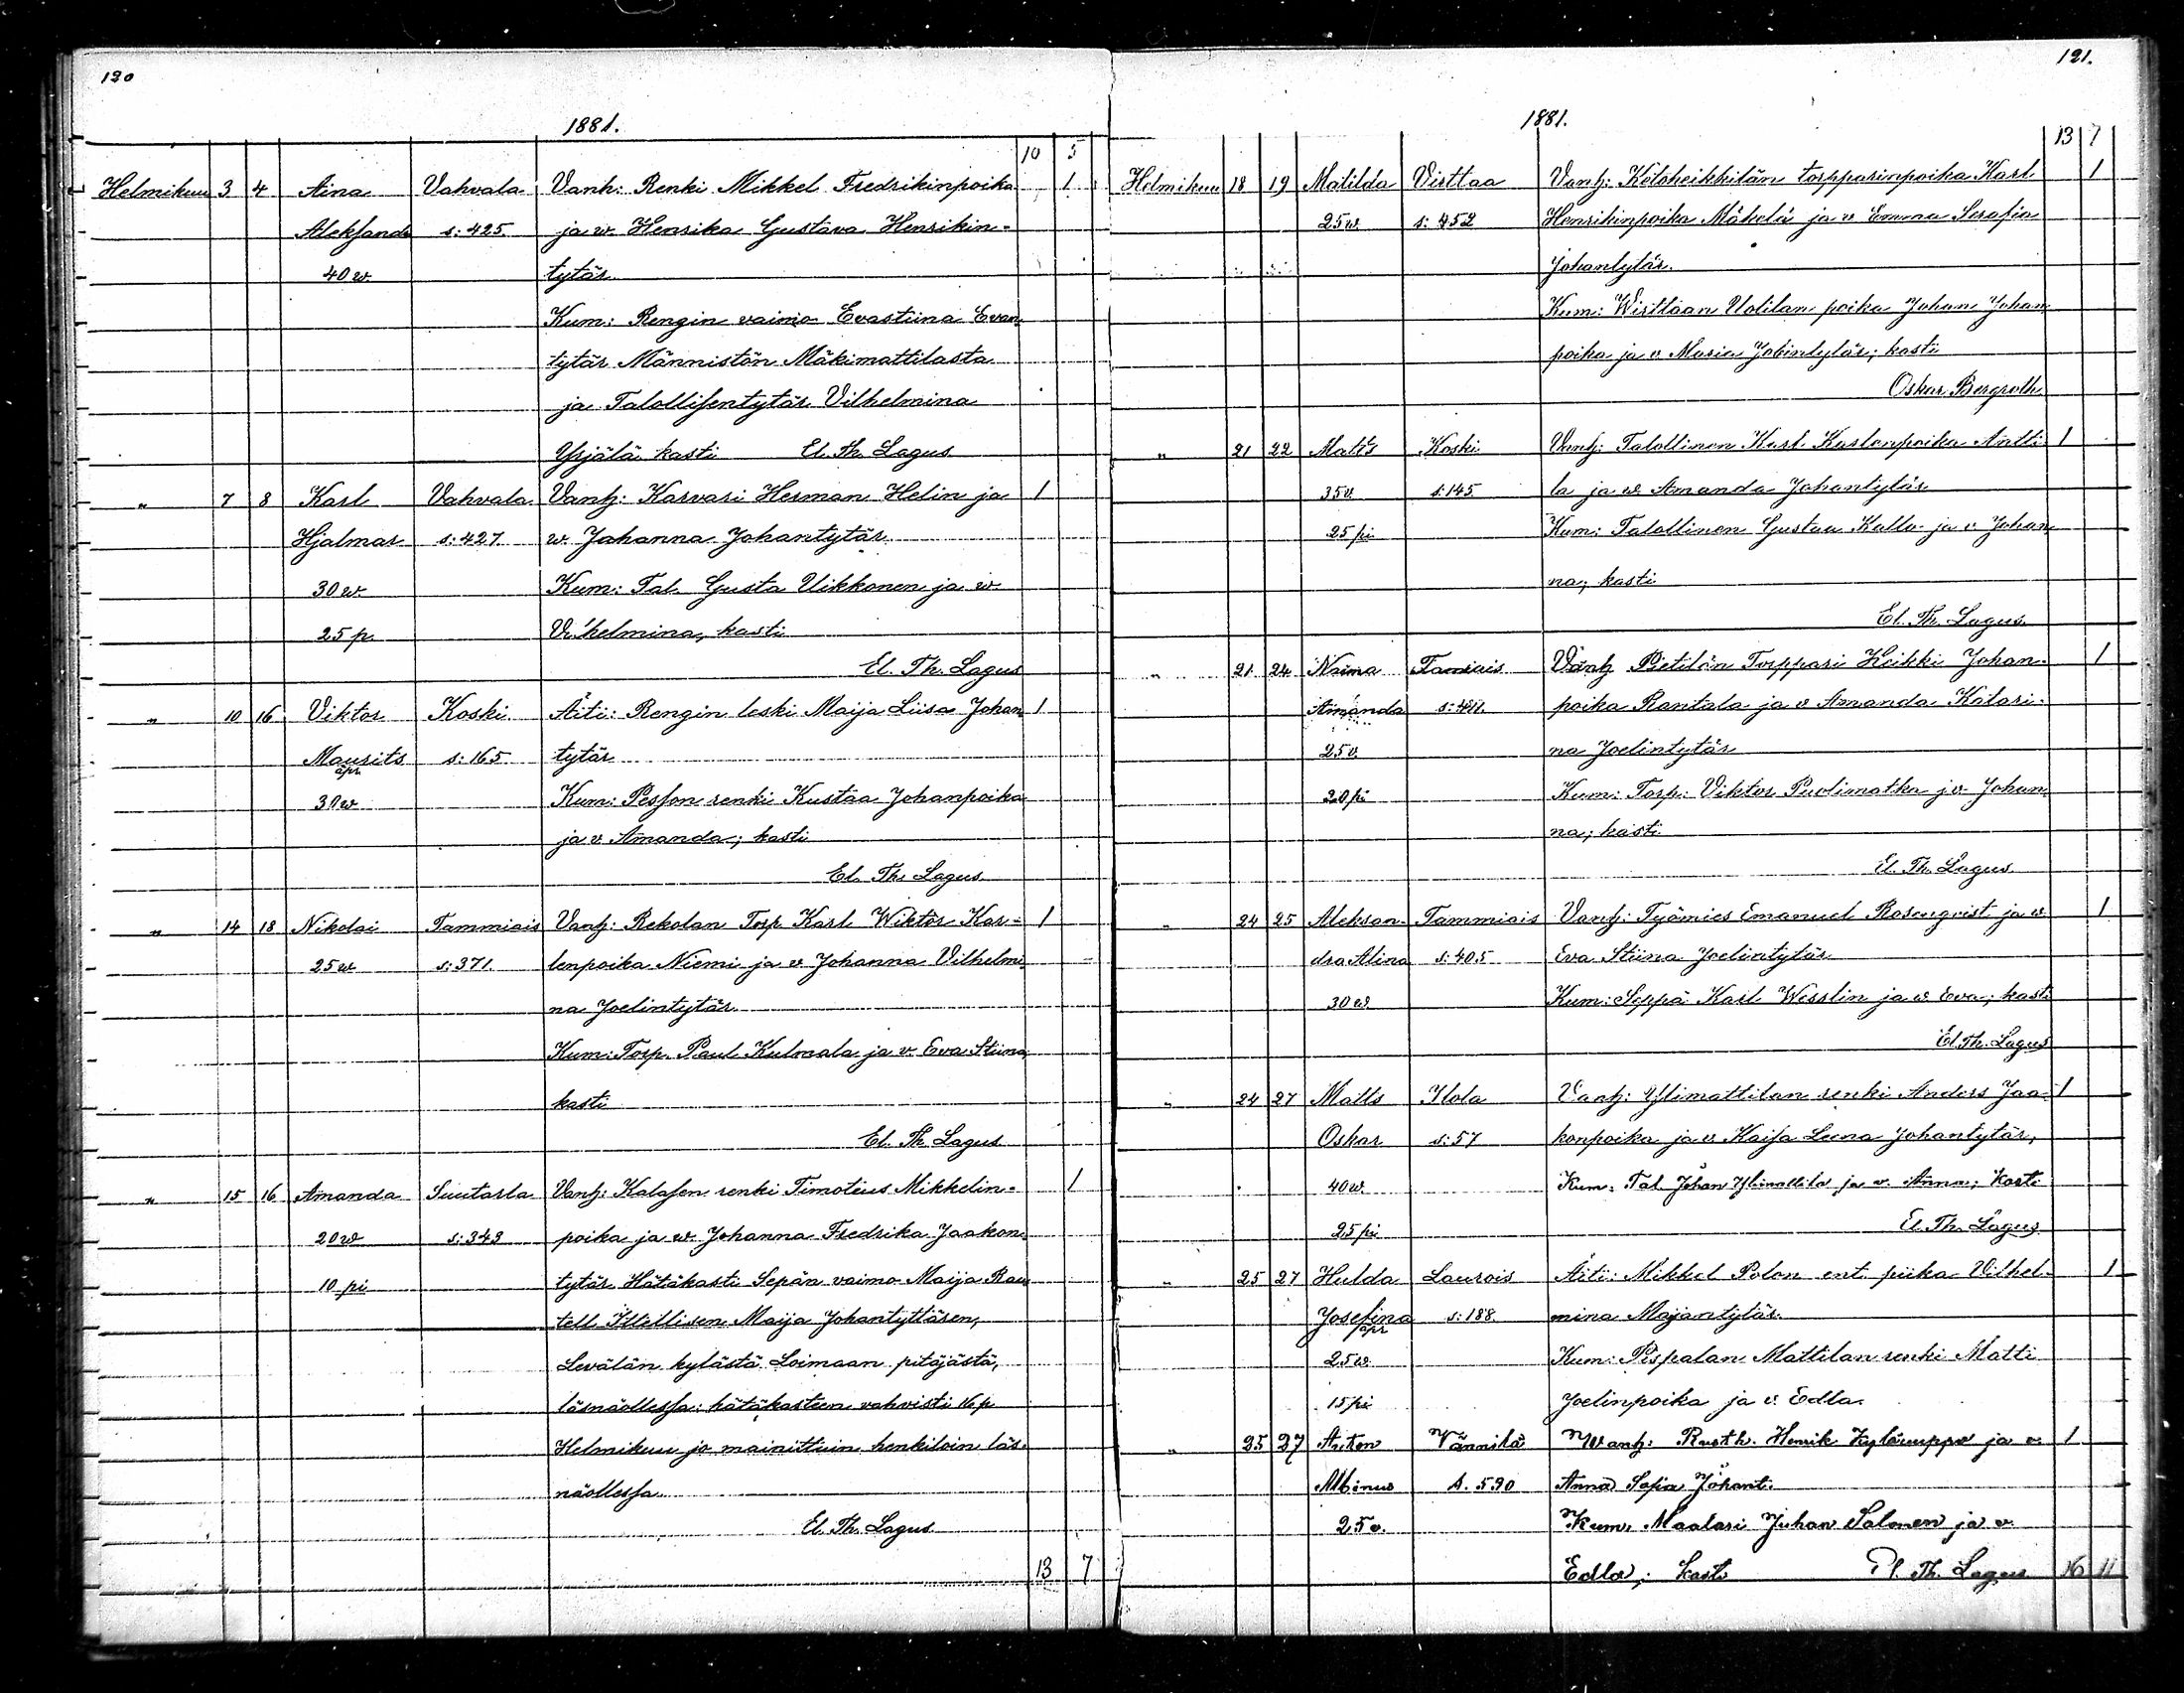 120
1881.
10 5
Helmikuu 3 4 Aina Vahvala Vanh: Renki Mikkel Fredrikinpoika 1
Aleksandr s: 425 ja w. Henrika Gustava Henrikin-
40 w. tytär
Kum: Rengin vaimo Evastiina Evan
tytär Männistön Mäkimattilasta
ja Talollisentytär Vilhelmina
Yrjälä kasti El. Th. Lagus
" 7 8 Karl Vahvala Vanh: Karvari Herman Helin ja 1
Hjalmar s: 427 w Johanna Johantytär
30 w Kum: Tal. Gusta Uikkonen ja w.
25 p. Vilhelmina, kasti
El. Th. Lagus
" 10 16 Viktor Koski Äiti: Rengin leski Maija Liisa Johan 1
Maurits s: 165 tytär
äpr.
30 w Kum: Pesson renki Kustaa Johanpoika
ja v Amanda; kasti
El. Th. Lagus
" 14 18 Nikolai Tammiais Vanh: Rekolan Torp Karl Wiktor Kar- 1
25 w s: 371. lenpoika Niemi ja v Johanna Vilhelmi
na Joelintytär
Kum: Torp. Paul Kulmala ja v. Eva Stiina
kasti
El. Th Lagus
" 15 16 Amanda Suutarla Vanh: Kalasen renki Timoteus Mikkelin- 1
20 w s: 343 poika ja w Johanna Fredrika Jaakon
10 pi tytär Hätäkasti Sepän vaimo Maija Ran
tell Itellisen Maija Johantyttären,
Levälän kylästä Loimaan pitäjästä,
läsnäollessa: hätäkasteen vahvisti 16 p
Helmikuu jo mainittuin henkilöin läs-
näollessa
El. Th. Lagus
13 7
121.
1881.
13 7
Helmikuu 18 19 Matilda Virttaa Vanh: Keloheikkilän torpparinpoika Karl 1
25 w. s: 452 Henrikinpoika Mäkelä ja v Emma Serafia
Johantytär.
Kum: Wirttaan Uotilan poika Johan Johan
poika ja v Maria Jobintytär; kasti
Oskar Bergroth
" 21 22 Matts Koski Vanh: Talollinen Karl Karlenpoika Antti 1
35 v s: 145 la ja w Amanda Johantytär
25 pi Kum: Talollinen Gustaa Kallo ja v Johan
na; kasti
El. Th. Lagus
" 21 24 Naima Tamiais Vanh Pietilän Torppari Heikki Johan- 1
Amanda poika Rantala ja v Amanda Katari-
25 v na Joelintytär
20 pi Kum: Torp: Viktor Puolimatka j v Johan
na; kasti
El. Th. Lagus
" 24 25 Aleksan- Tammiais Vanh: Työmies Emanuel Rosenqvist ja w 1
dra Alina s: 405 Eva Stiina Joelintytär
30 w Kum: Seppä Karl Wesslin ja w Eva; kasti
El. Th. Lagus
" 24 27 Matts Ilola Vanh: Ylimattilan renki Anders Jaa- 1
Oskar s: 57 konpoika ja v Kaisa Leena Johantytär,
40 w. Kum: Tal Johan Ylimattila ja v. Anna; Kasti
25 pi El. Th. Lagus
" 25 27 Hulda Laurois Äiti: Mikkel Polon ent. piika Vilhel- 1
Josefina s: 188 mina Majantytär.
äpr
25 w. Kum: Pispalan Mattilan renki Matti
15 pi Joelinpoika ja v. Edla.
" 25 27 Anton Vännilä Wanh: Rusth. Henrik Kylänuppo ja v. 1
Albinus s. 590 Anna Sofia Johant.
25 v. Kum. Maalari Juhan Salonen ja v
Edla; kasti El. Th. Lagus 16 11